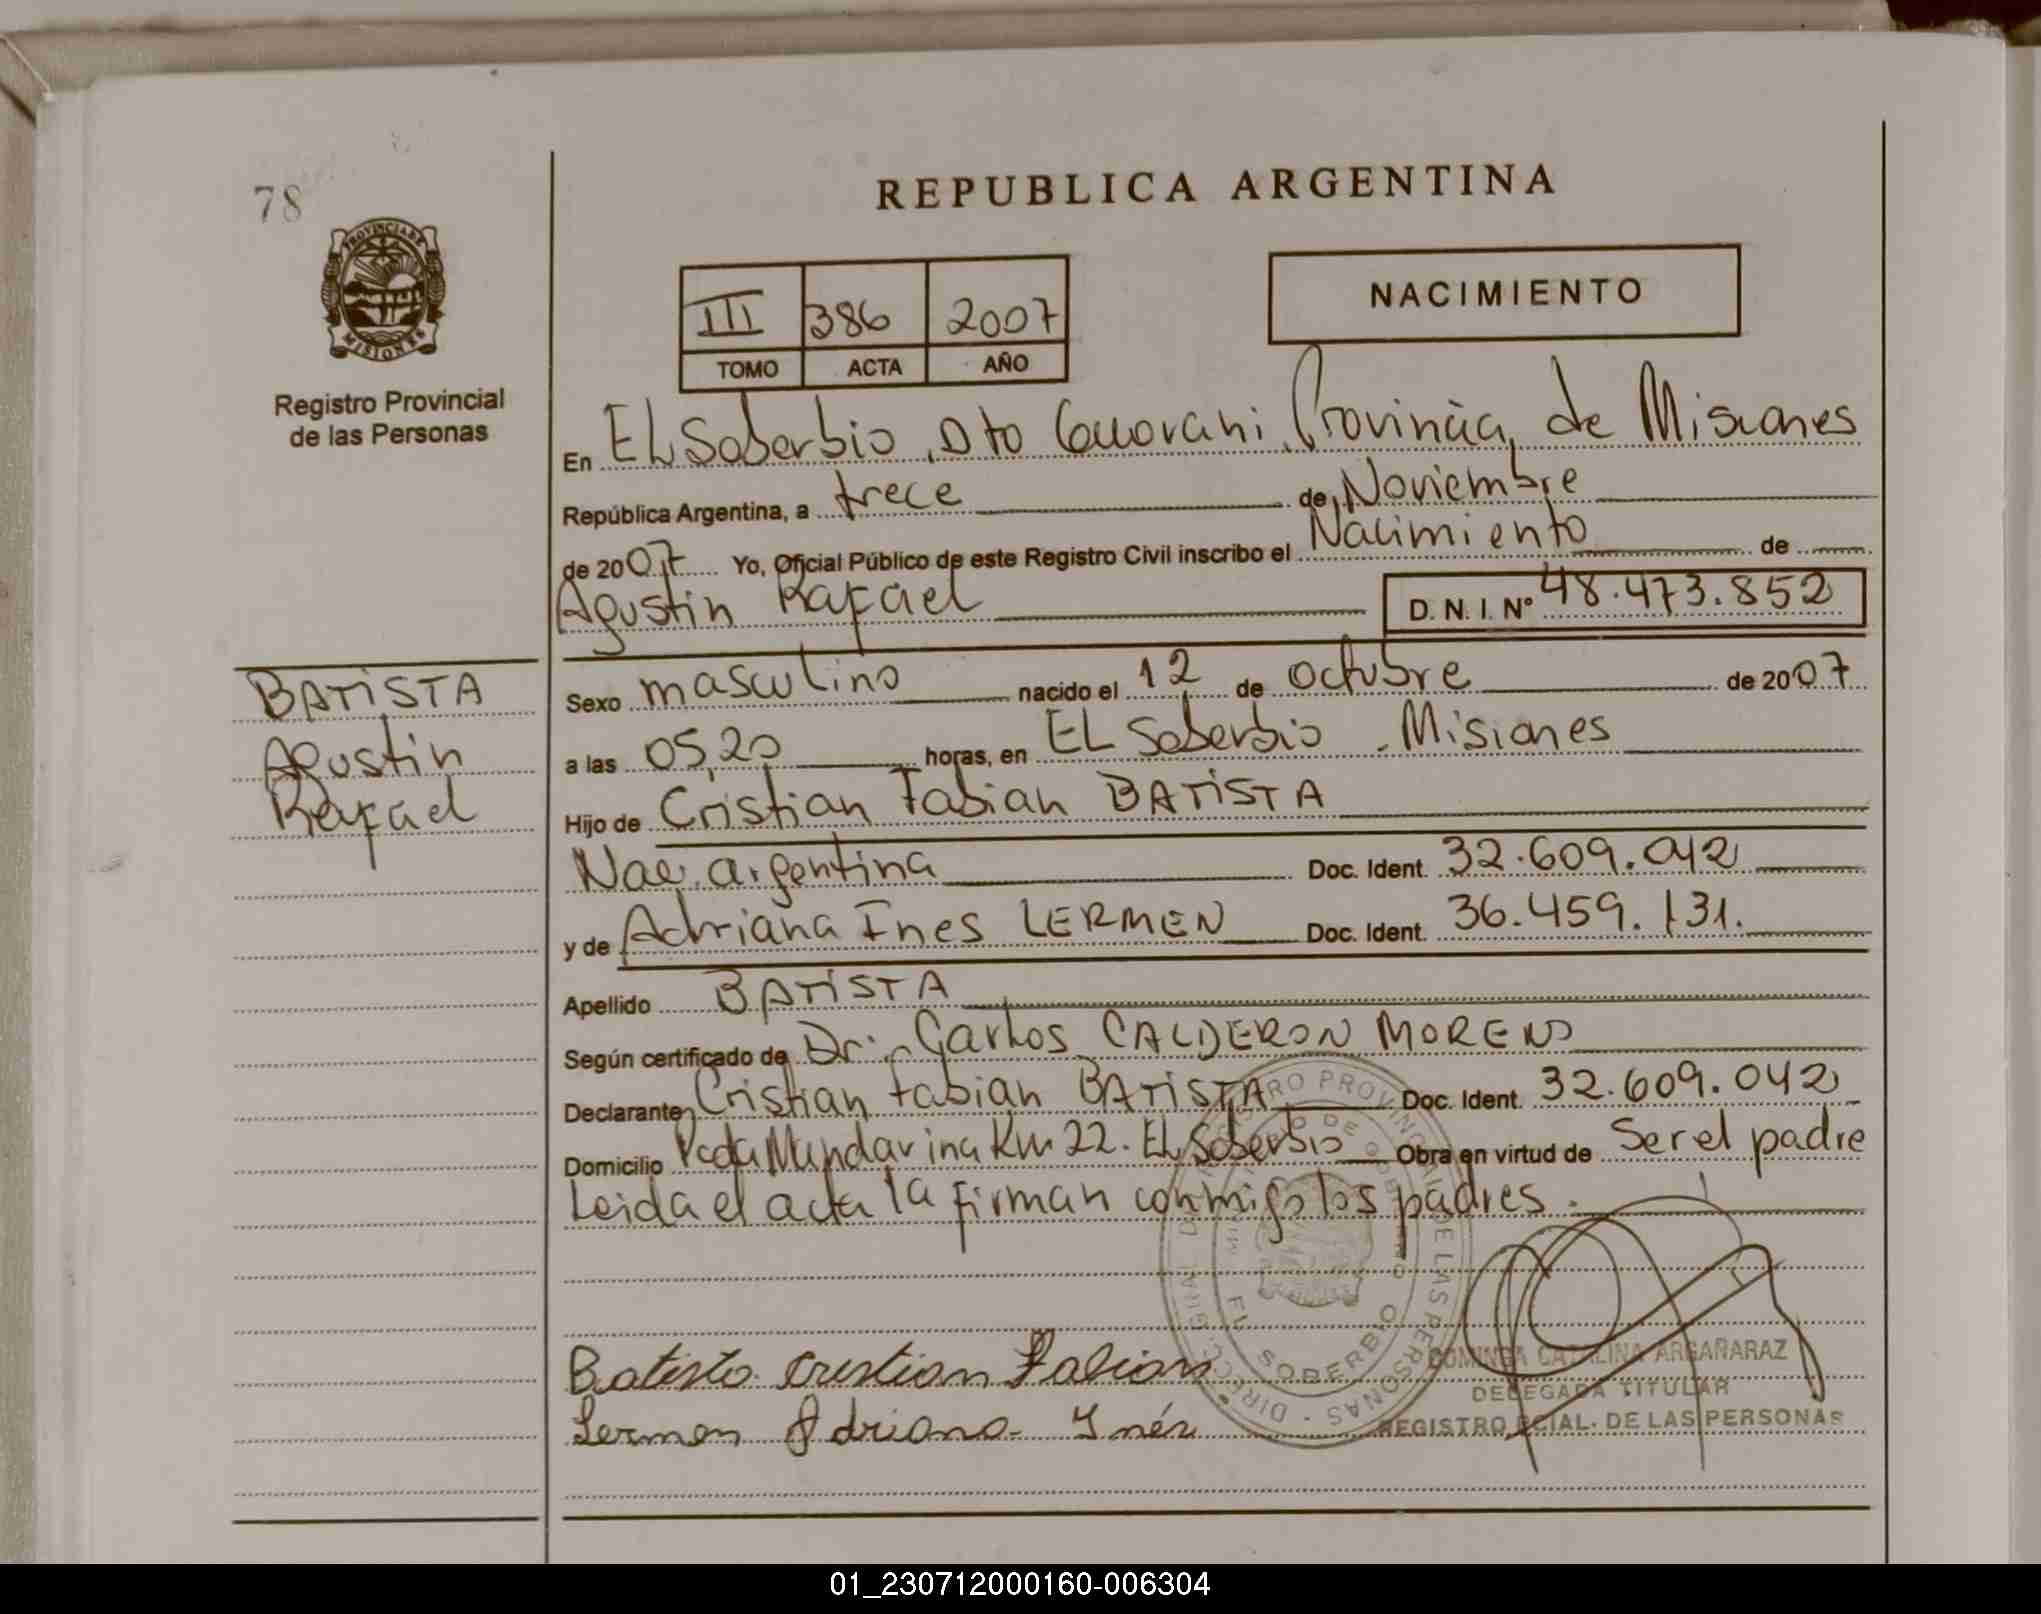 78
PROVINCIA DE
MISIONES
Registro Provincial
de las Personas
REPUBLICA ARGENTINA
III 386 2007
TOMO ACTA AÑO
NACIMIENTO
En El Soberbio, Dto Guarani, Provincia de Misiones
República Argentina, a trece de Noviembre
de 2007 Yo, Oficial Público de este Registro Civil inscribo el Nacimiento de
Agustin Rafael D. N. I. Nº 48.473.852
BATISTA
Agustin
Rafael
Sexo masculino nacido el 12 de octubre de 2007
a las 05,20 horas, en El Soberbio . Misiones
Hijo de Cristian Fabian BATISTA
Nac. argentina Doc. Ident. 32.609.042
y de Adriana Ines LERMEN Doc. Ident. 36.459.131.
Apellido BATISTA
Según certificado de Dr. Carlos CALDERON MORENO
Declarante Cristian Fabian BATISTA Doc. Ident. 32.609.042
Domicilio Pcda Mandarina Km 22. El Soberbio Obra en virtud de Ser el padre
Leida el acta la firman conmigo los padres.
EL SOBERBIO
Batista Cristian Fabian
Lermen Adriana Inés
DOMINGA CATALINA ARGAÑARAZ
DELEGADA TITULAR
REGISTRO PCIAL. DE LAS PERSONAS
01_230712000160-006304